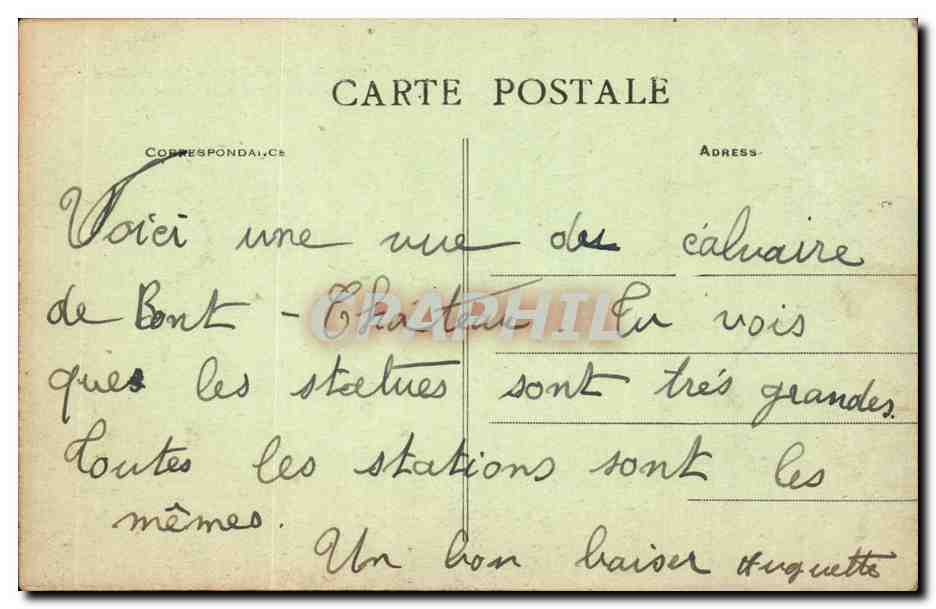 CARTE POSTALE
CORRESPONDANCE
ADRESSE
Voici une vue du calvaire
de Pont - Château. Tu vois
que les statues sont très grandes.
Toutes les stations sont les
mêmes.
Un bon baiser Huguette
CPAPHIL